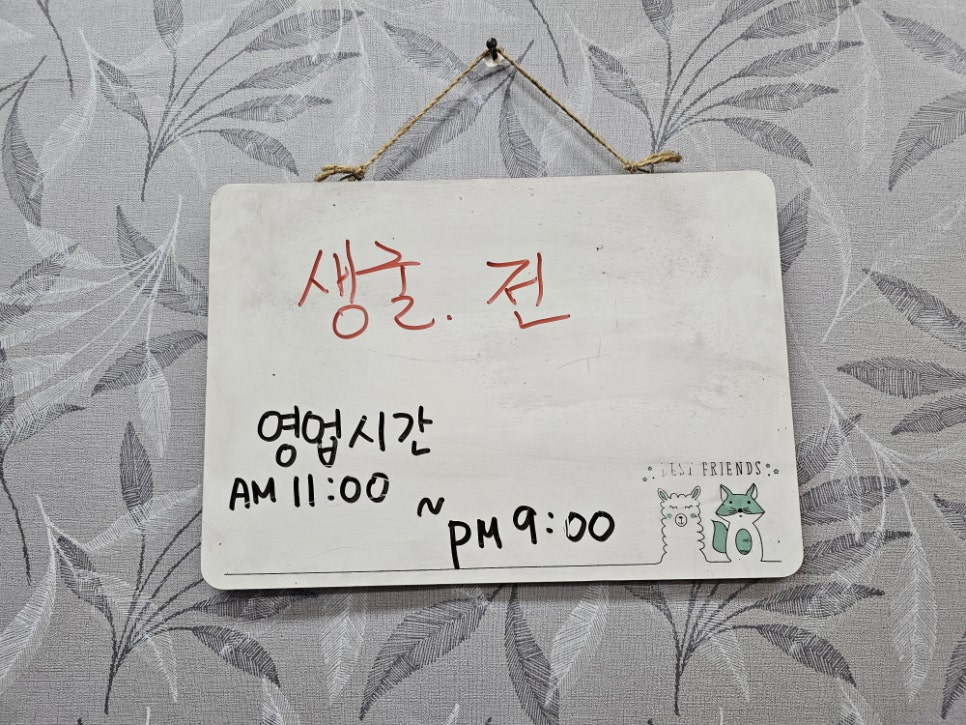 생굴. 전
영업시간
AM 11:00
~
PM 9:00
BEST FRIENDS